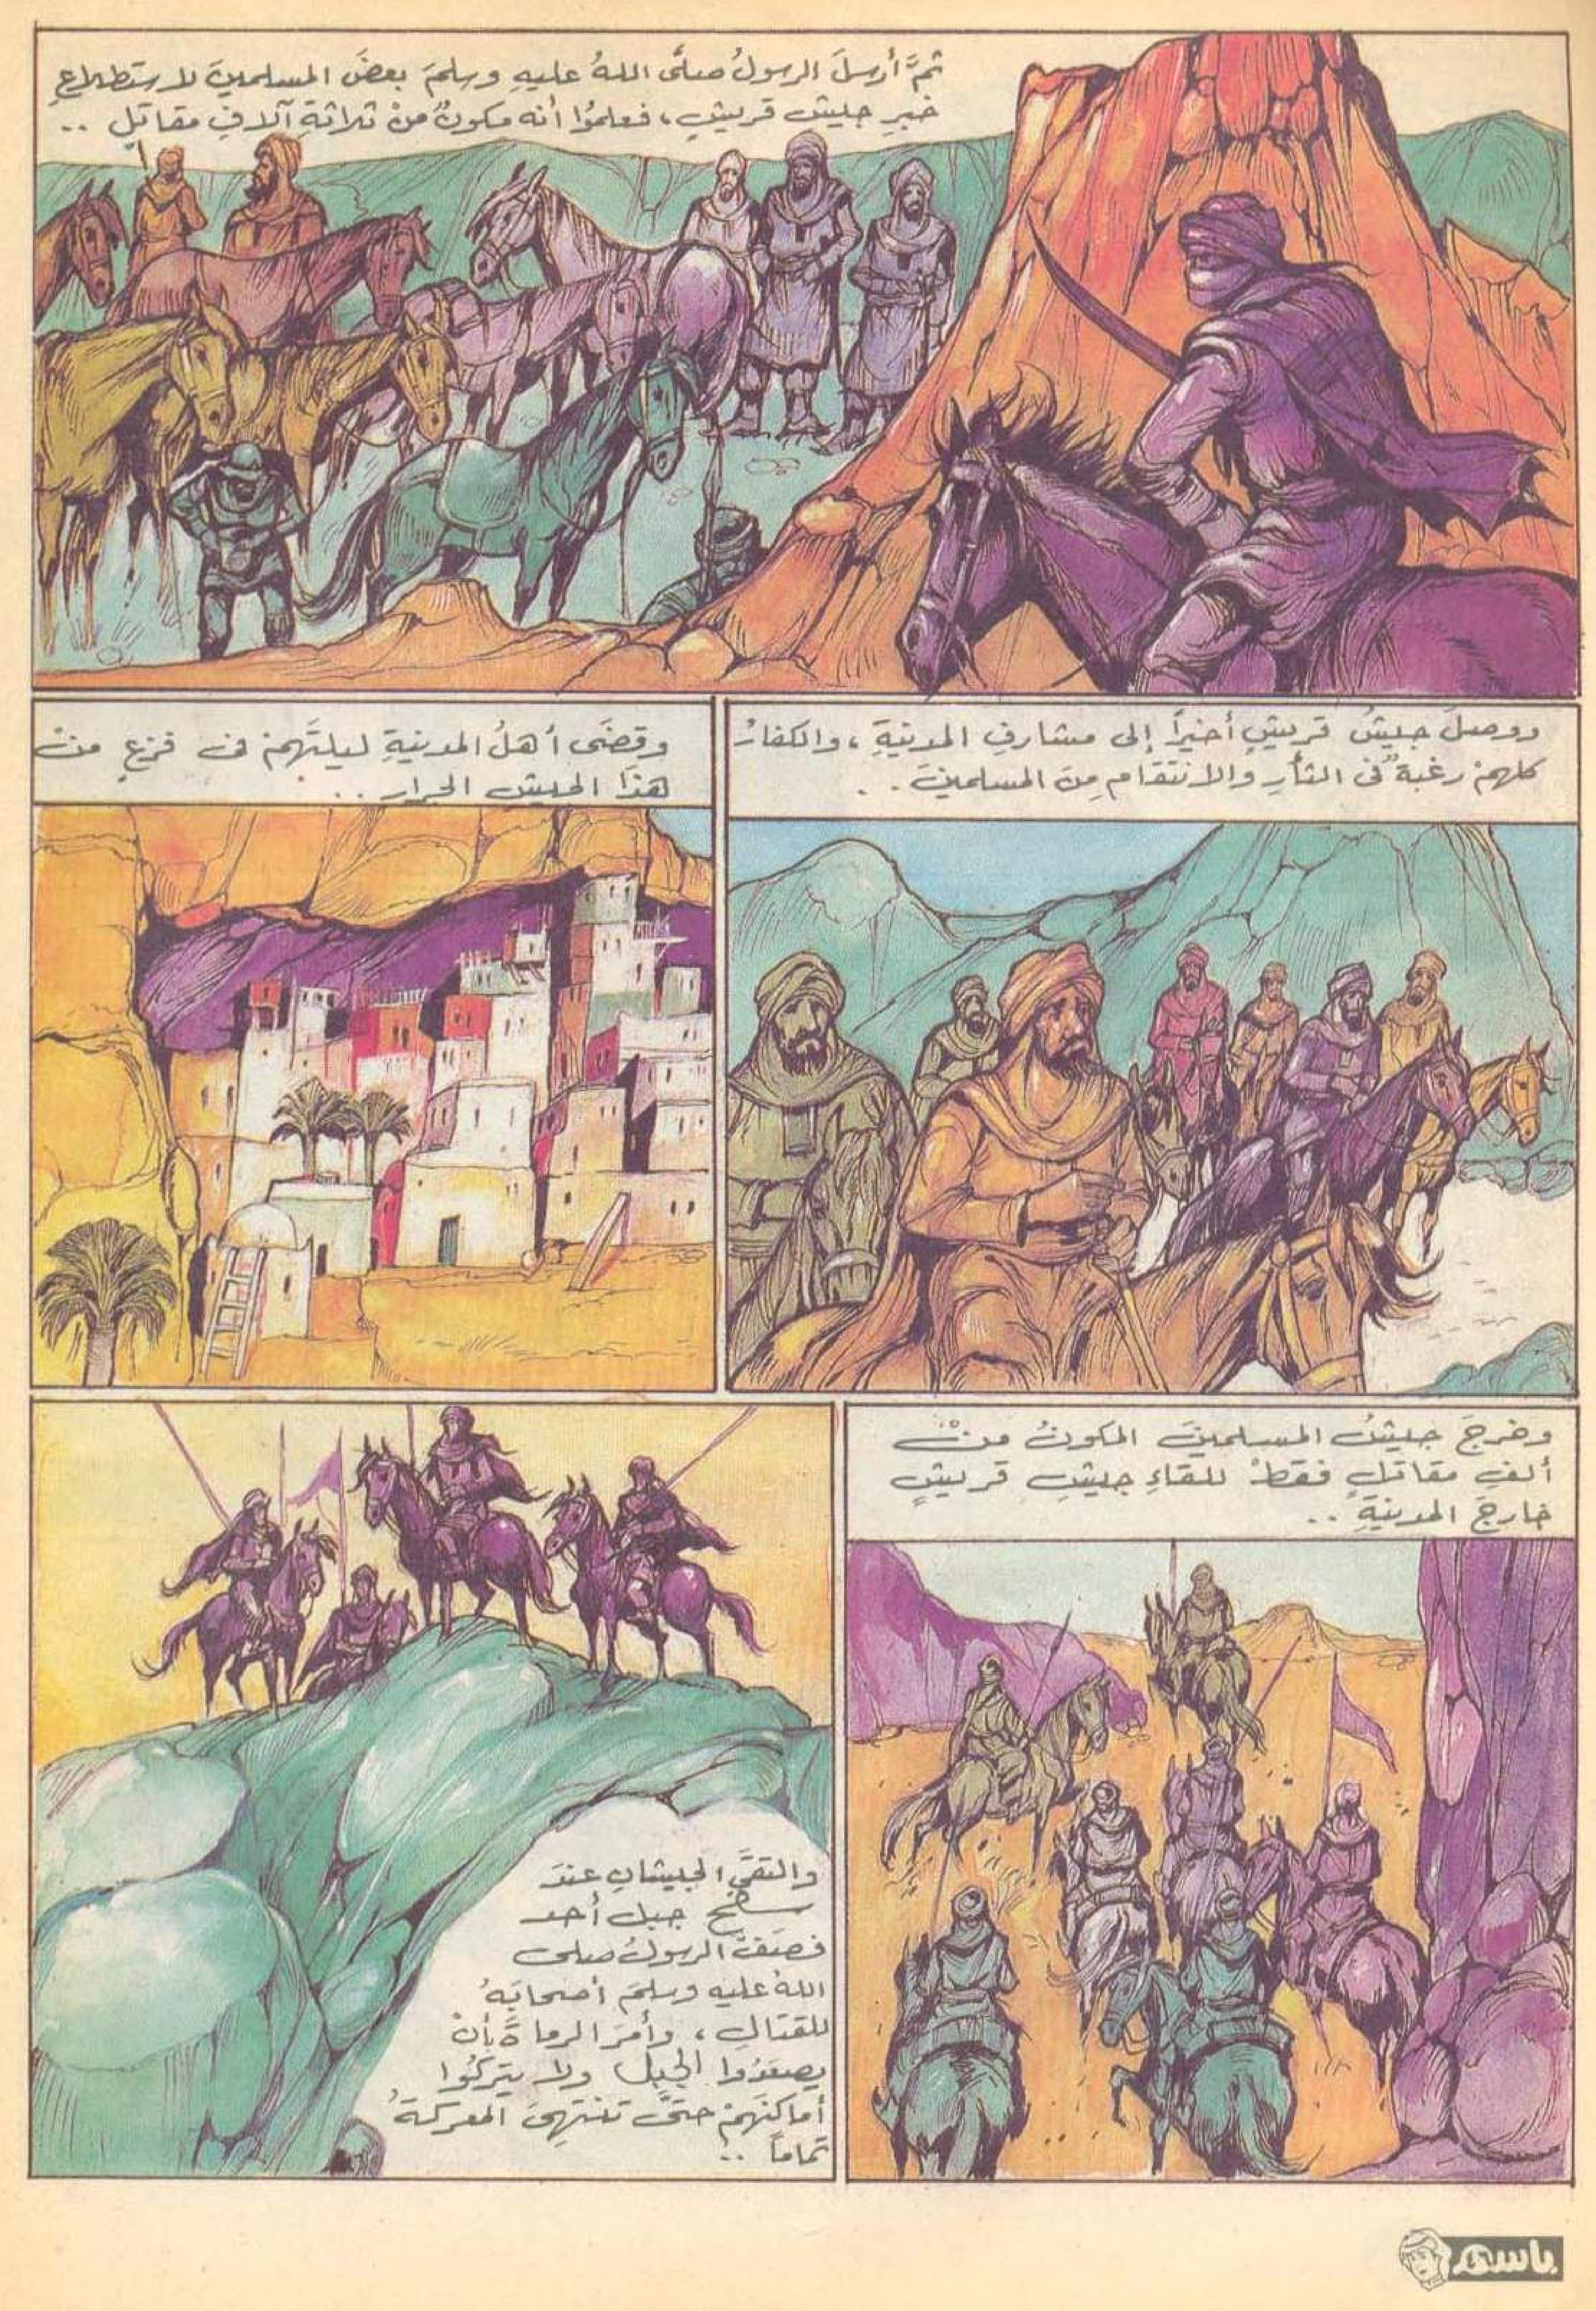 ثمَّ أرسلَ الرسولُ صلَّى اللهُ عليهِ وسلمَ بعضَ المسلمينَ لاستطلاعِ
خبرِ جيشِ قريشٍ، فعلمُوا أنه مكونٌ منْ ثلاثةِ آلافِ مقاتلٍ ..
ووصلَ جيشُ قريشٍ أخيراً إلى مشارفِ المدينةِ، والكفارُ
كلهمْ رغبةٌ فى الثأرِ والانتقامِ مِنَ المسلمينَ ..
وقضَى أهلُ المدينةِ ليلتَهمْ فى فزعٍ منْ
هذَا الجيشِ الجرارِ ..
وخرجَ جيشُ المسلمينَ المكونُ منْ
ألفِ مقاتلٍ فقطْ للقاءِ جيشِ قريشٍ
خارجَ المدينةِ ..
والتقَى الجيشانِ عندَ
سطح جبل أحد
فصَفَّ الرسولُ صلى
اللهُ عليه وسلمَ أصحابَهُ
للقتالِ، وأمرَ الرماةَ بأنْ
يصعَدُوا الجبلَ ولا يتركُوا
أماكنَهمْ حتىَّ تنتهِىَ المعركةُ
تماماً ..
باسم